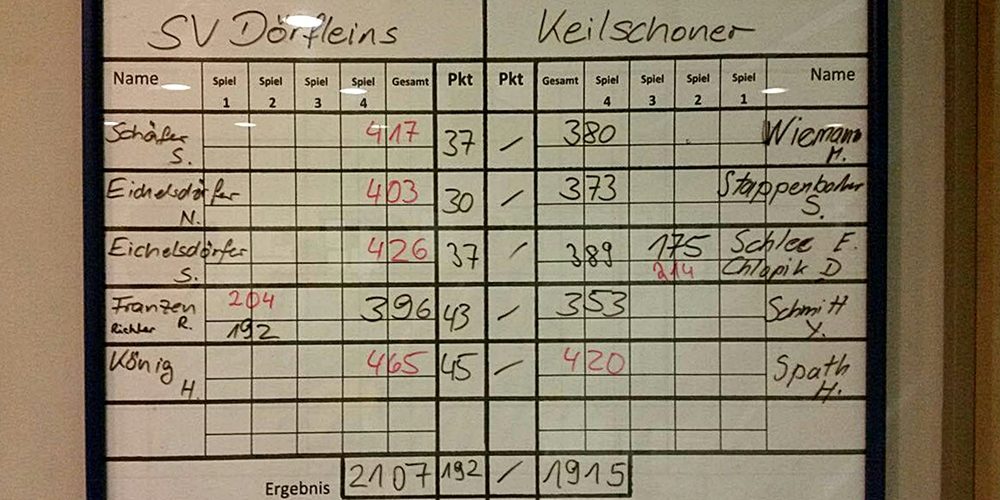 SV Dörfleins Keilschoner
Name Spiel 1 Spiel 2 Spiel 3 Spiel 4 Gesamt Pkt Pkt Gesamt Spiel 4 Spiel 3 Spiel 2 Spiel 1 Name
Schäfer 417 37 / 380 Wiemann
S. H.
Eichelsdörfer 403 30 / 373 Stappenbacher
N. S.
Eichelsdörfer 426 37 / 389 175 Schlee E.
S. 214 Chlapik D
Franzen 204 396 43 / 353 Schmitt
Richter R. 192 Y.
König 465 45 / 420 Spath
H. H.
Ergebnis 2107 192 / 1915